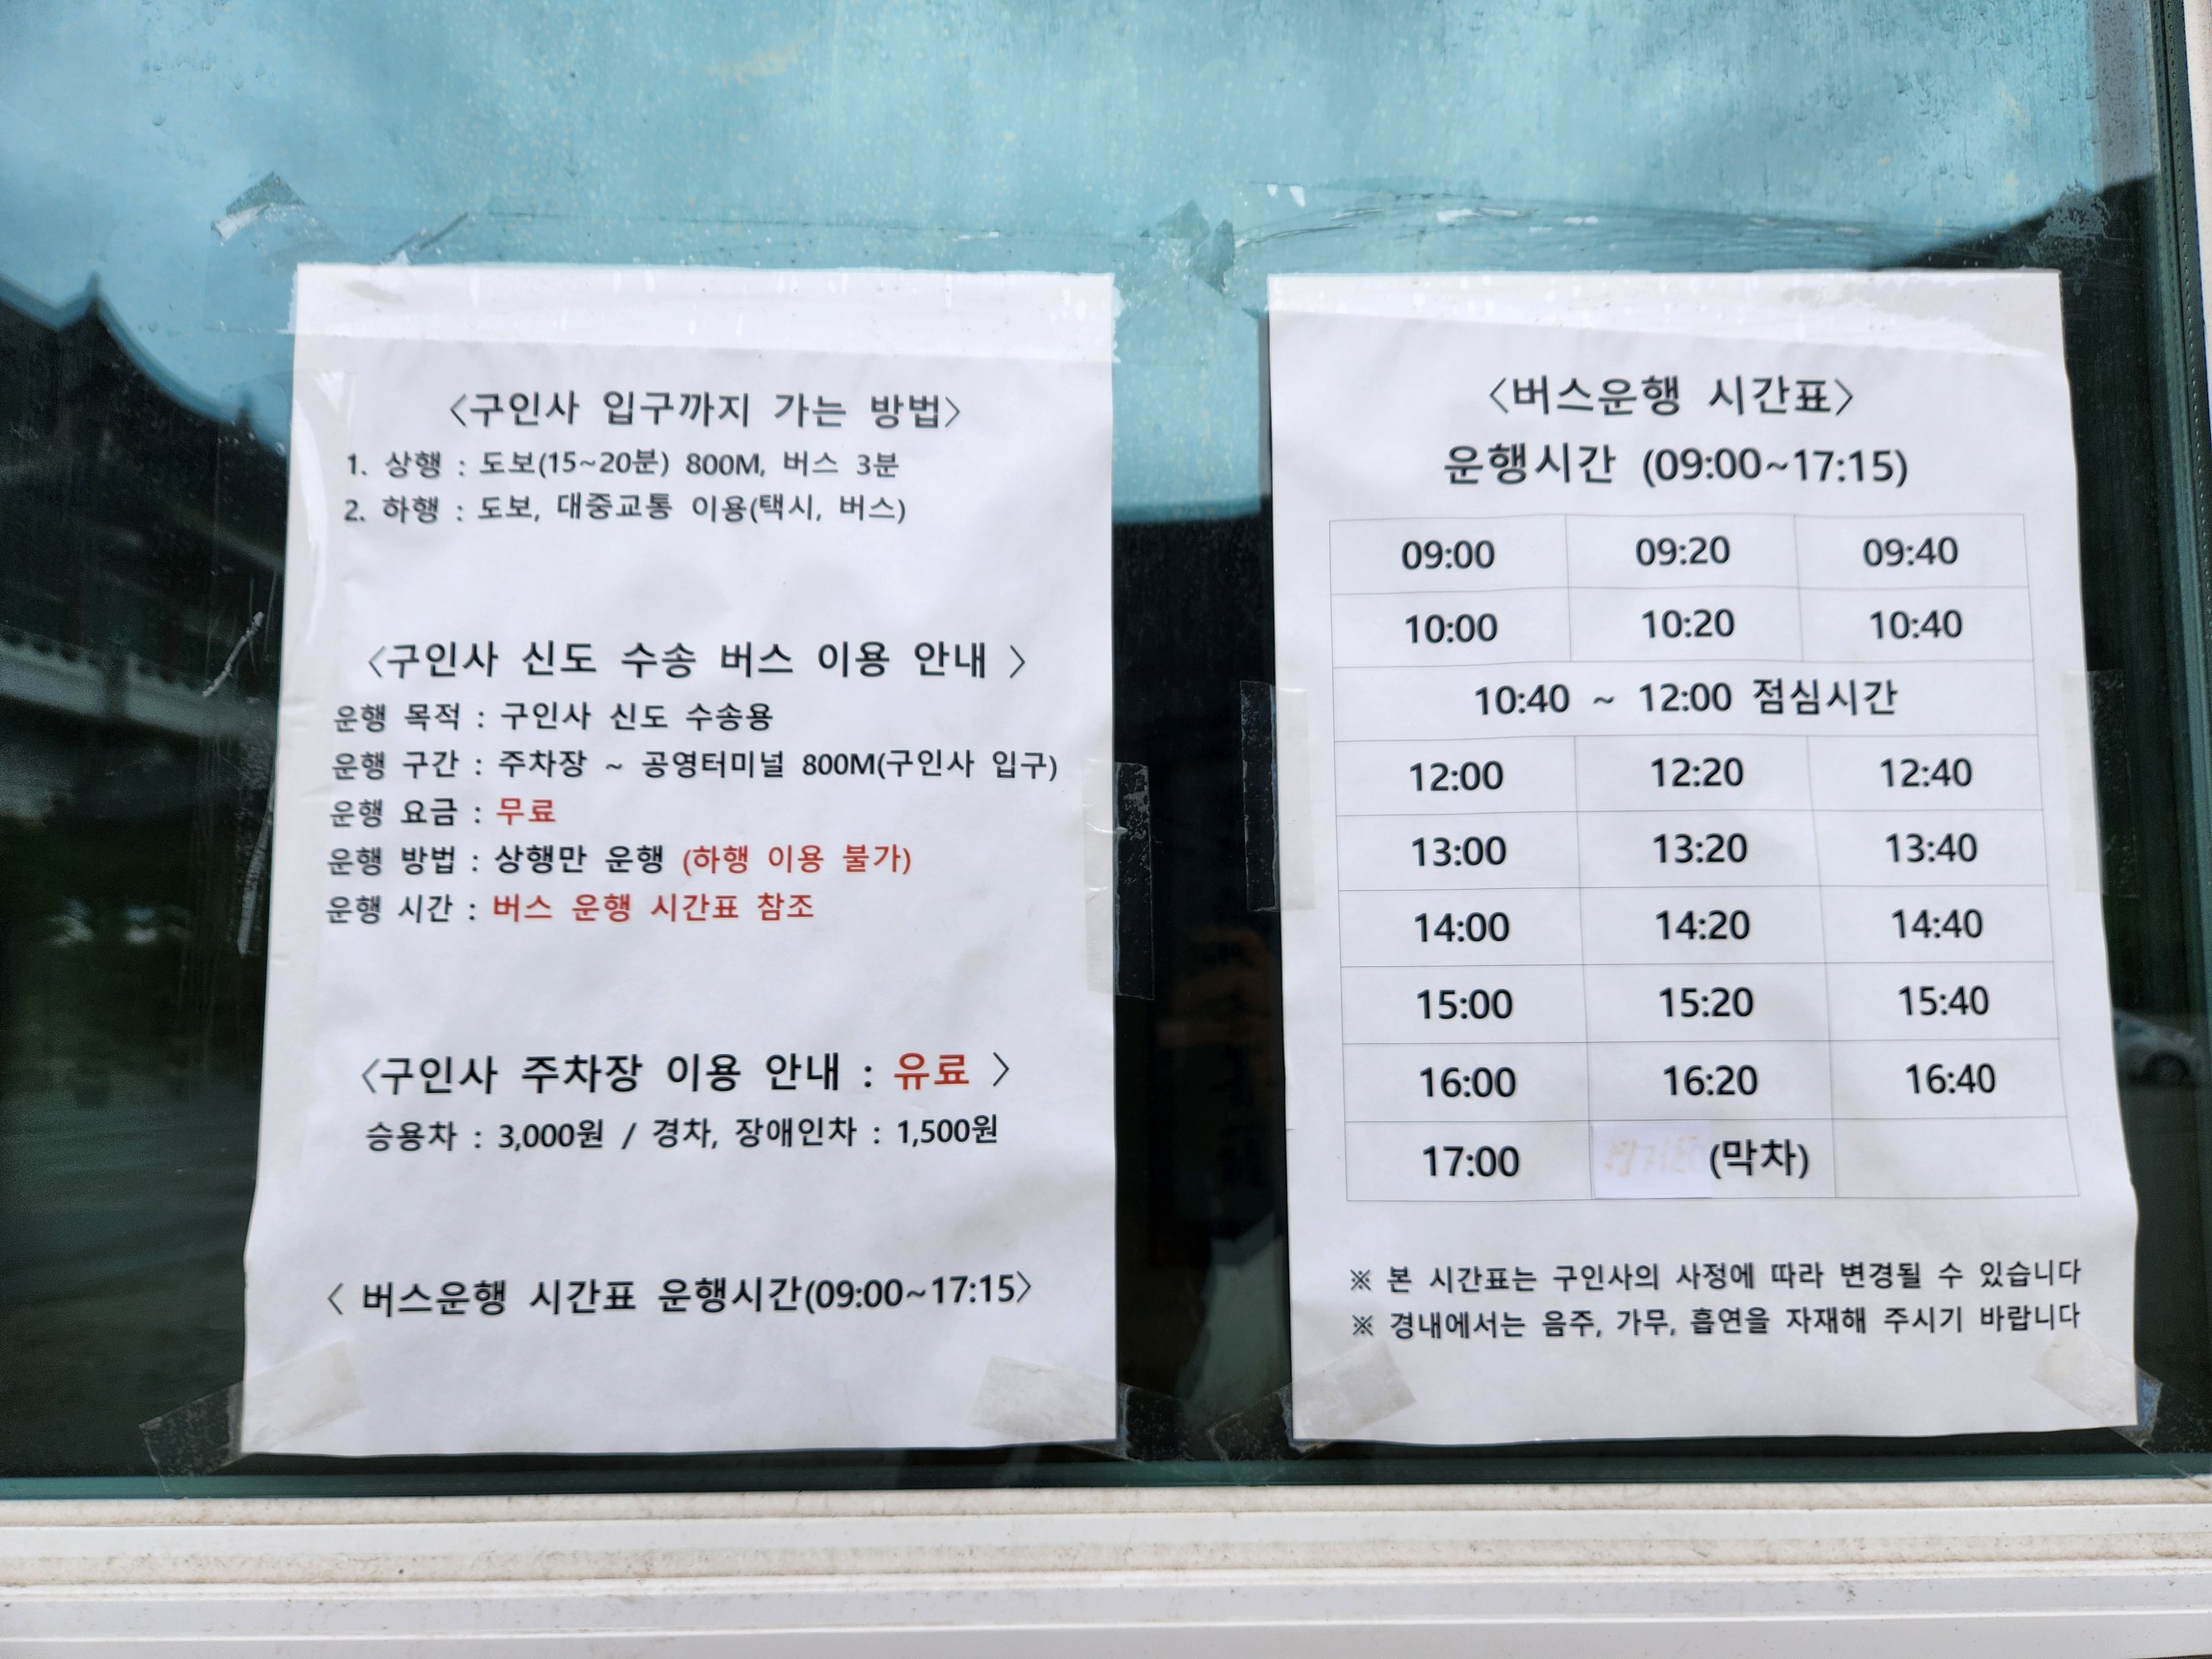 <구인사 입구까지 가는 방법>
1. 상행 : 도보(15~20분) 800M, 버스 3분
2. 하행 : 도보, 대중교통 이용(택시, 버스)
<구인사 신도 수송 버스 이용 안내 >
운행 목적 : 구인사 신도 수송용
운행 구간 : 주차장 ~ 공영터미널 800M(구인사 입구)
운행 요금 : 무료
운행 방법 : 상행만 운행 (하행 이용 불가)
운행 시간 : 버스 운행 시간표 참조
<구인사 주차장 이용 안내 : 유료 >
승용차 : 3,000원 / 경차, 장애인차 : 1,500원
< 버스운행 시간표 운행시간(09:00~17:15>
<버스운행 시간표>
운행시간 (09:00~17:15)
09:00 09:20 09:40
10:00 10:20 10:40
10:40 ~ 12:00 점심시간
12:00 12:20 12:40
13:00 13:20 13:40
14:00 14:20 14:40
15:00 15:20 15:40
16:00 16:20 16:40
17:00 (막차)
※ 본 시간표는 구인사의 사정에 따라 변경될 수 있습니다
※ 경내에서는 음주, 가무, 흡연을 자재해 주시기 바랍니다